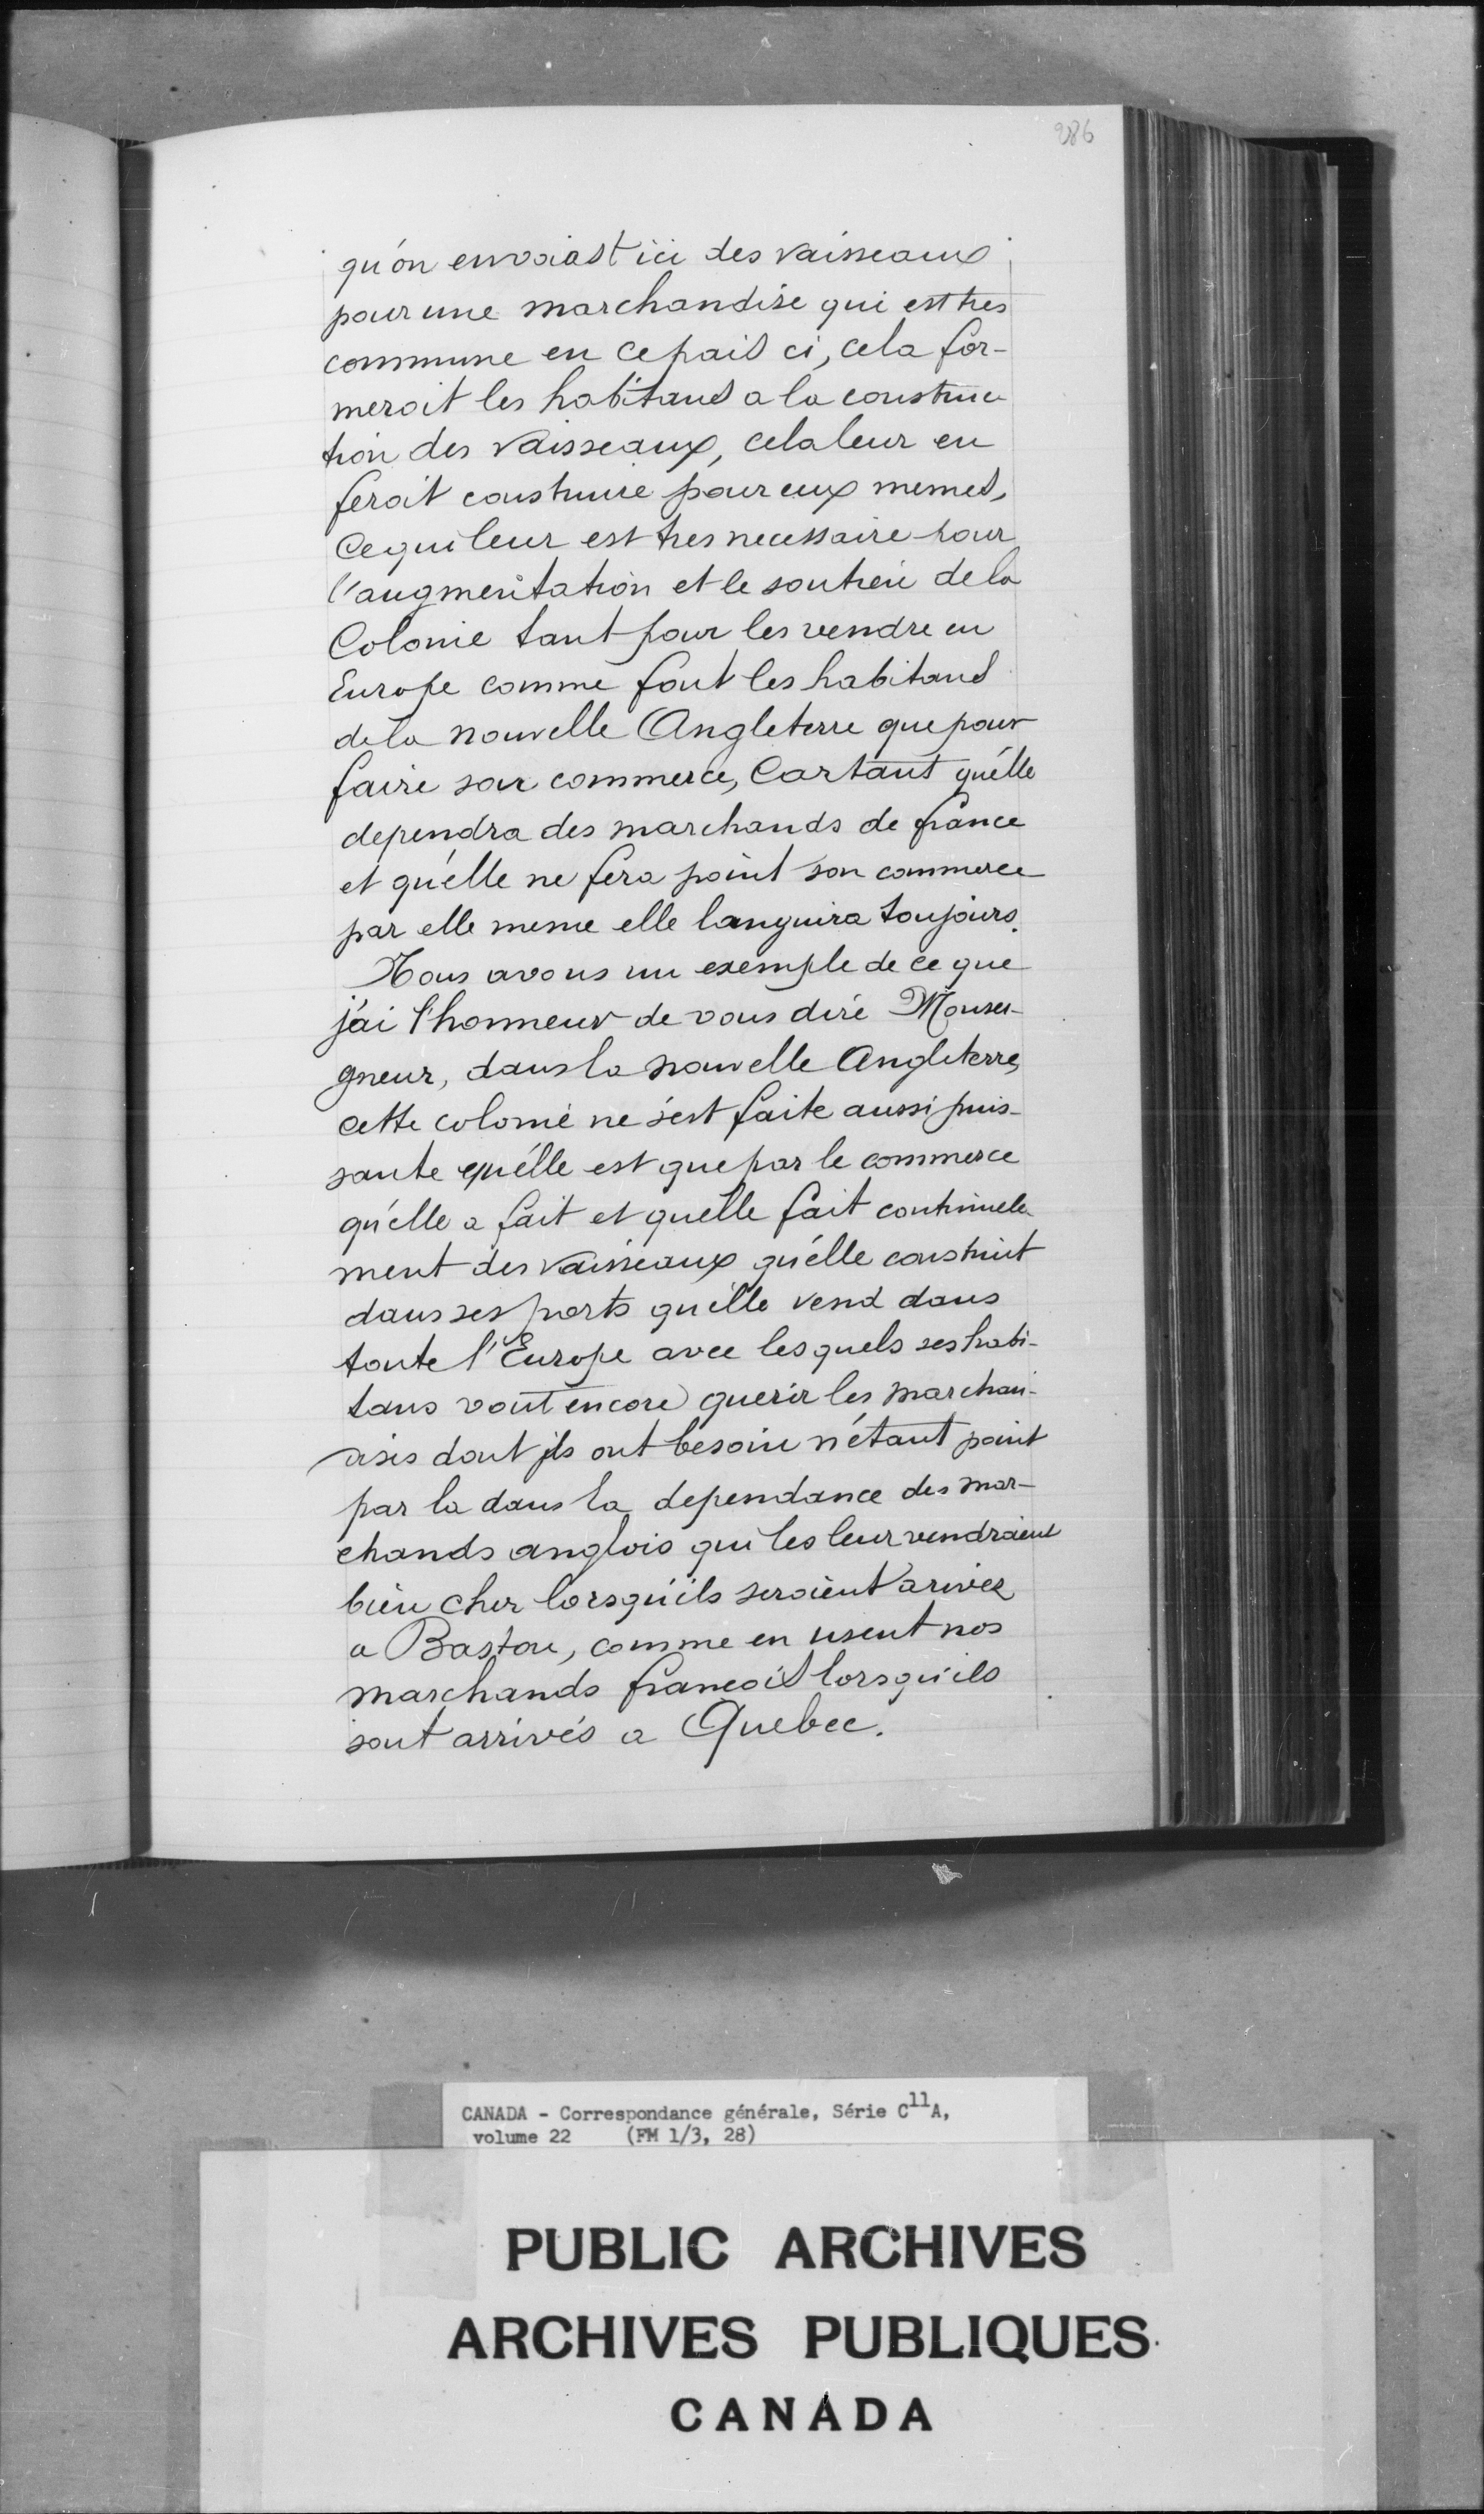 286
qu'on envoiast ici des vaisseaux
pour une marchandise qui est tres
commune en ce pais ci, cela for-
meroit les habitans a la construc
tion des vaisseaux, cela leur en
feroit construire pour eux memes,
Ce qui leur est tres necessaire pour
l'augmentation et le soutien de la
Colonie tant pour les vendre en
Europe comme font les habitans
de la nouvelle Angleterre que pour
faire son commerce, Car tant qu'elle
dependra des marchands de france
et qu'elle ne fera point son commerce
par elle meme elle languira toujours.
Nous avons un exemple de ce que
j'ai l'honneur de vous dire Monsei-
gneur, dans la nouvelle Angleterre,
cette colonie ne s'est faite aussi puis-
sante qu'elle est que par le commerce
qu'elle a fait et qu'elle fait continuele
ment des vaisseaux qu'elle construit
dans ses ports qu'elle vend dans
toute l'Europe avec lesquels ses habi-
tans vont encore querir les marchan-
dises dont ils ont besoin n'étant point
par la dans la dependance des mar-
chands anglois qui les leur vendraient
bien cher lorsqu'ils seroient arivez
a Baston, comme en usent nos
marchands francois lorsqu'ils
sont arrivés a Quebec.
CANADA - Correspondance générale, Série C11A,
volume 22 (FM 1/3, 28)
PUBLIC ARCHIVES
ARCHIVES PUBLIQUES
CANADA